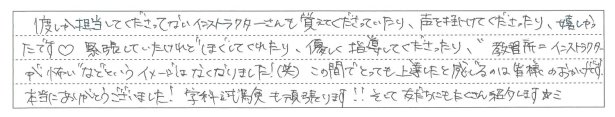 1度しか担当してくださってないインストラクターさんも覚えてくださっていたり、声を掛けてくださったり、嬉しかっ
たです♡ 緊張していたけれどほぐしてくれたり、優しく指導してくださったり、"教習所=インストラクター
が怖い"などというイメージはなくなりました!(笑) この間でとっても上達したと感じるのは皆様のおかげです
本当にありがとうございました! 学科試験も頑張ります!! そして友だちにもたくさん紹介します☆ミ